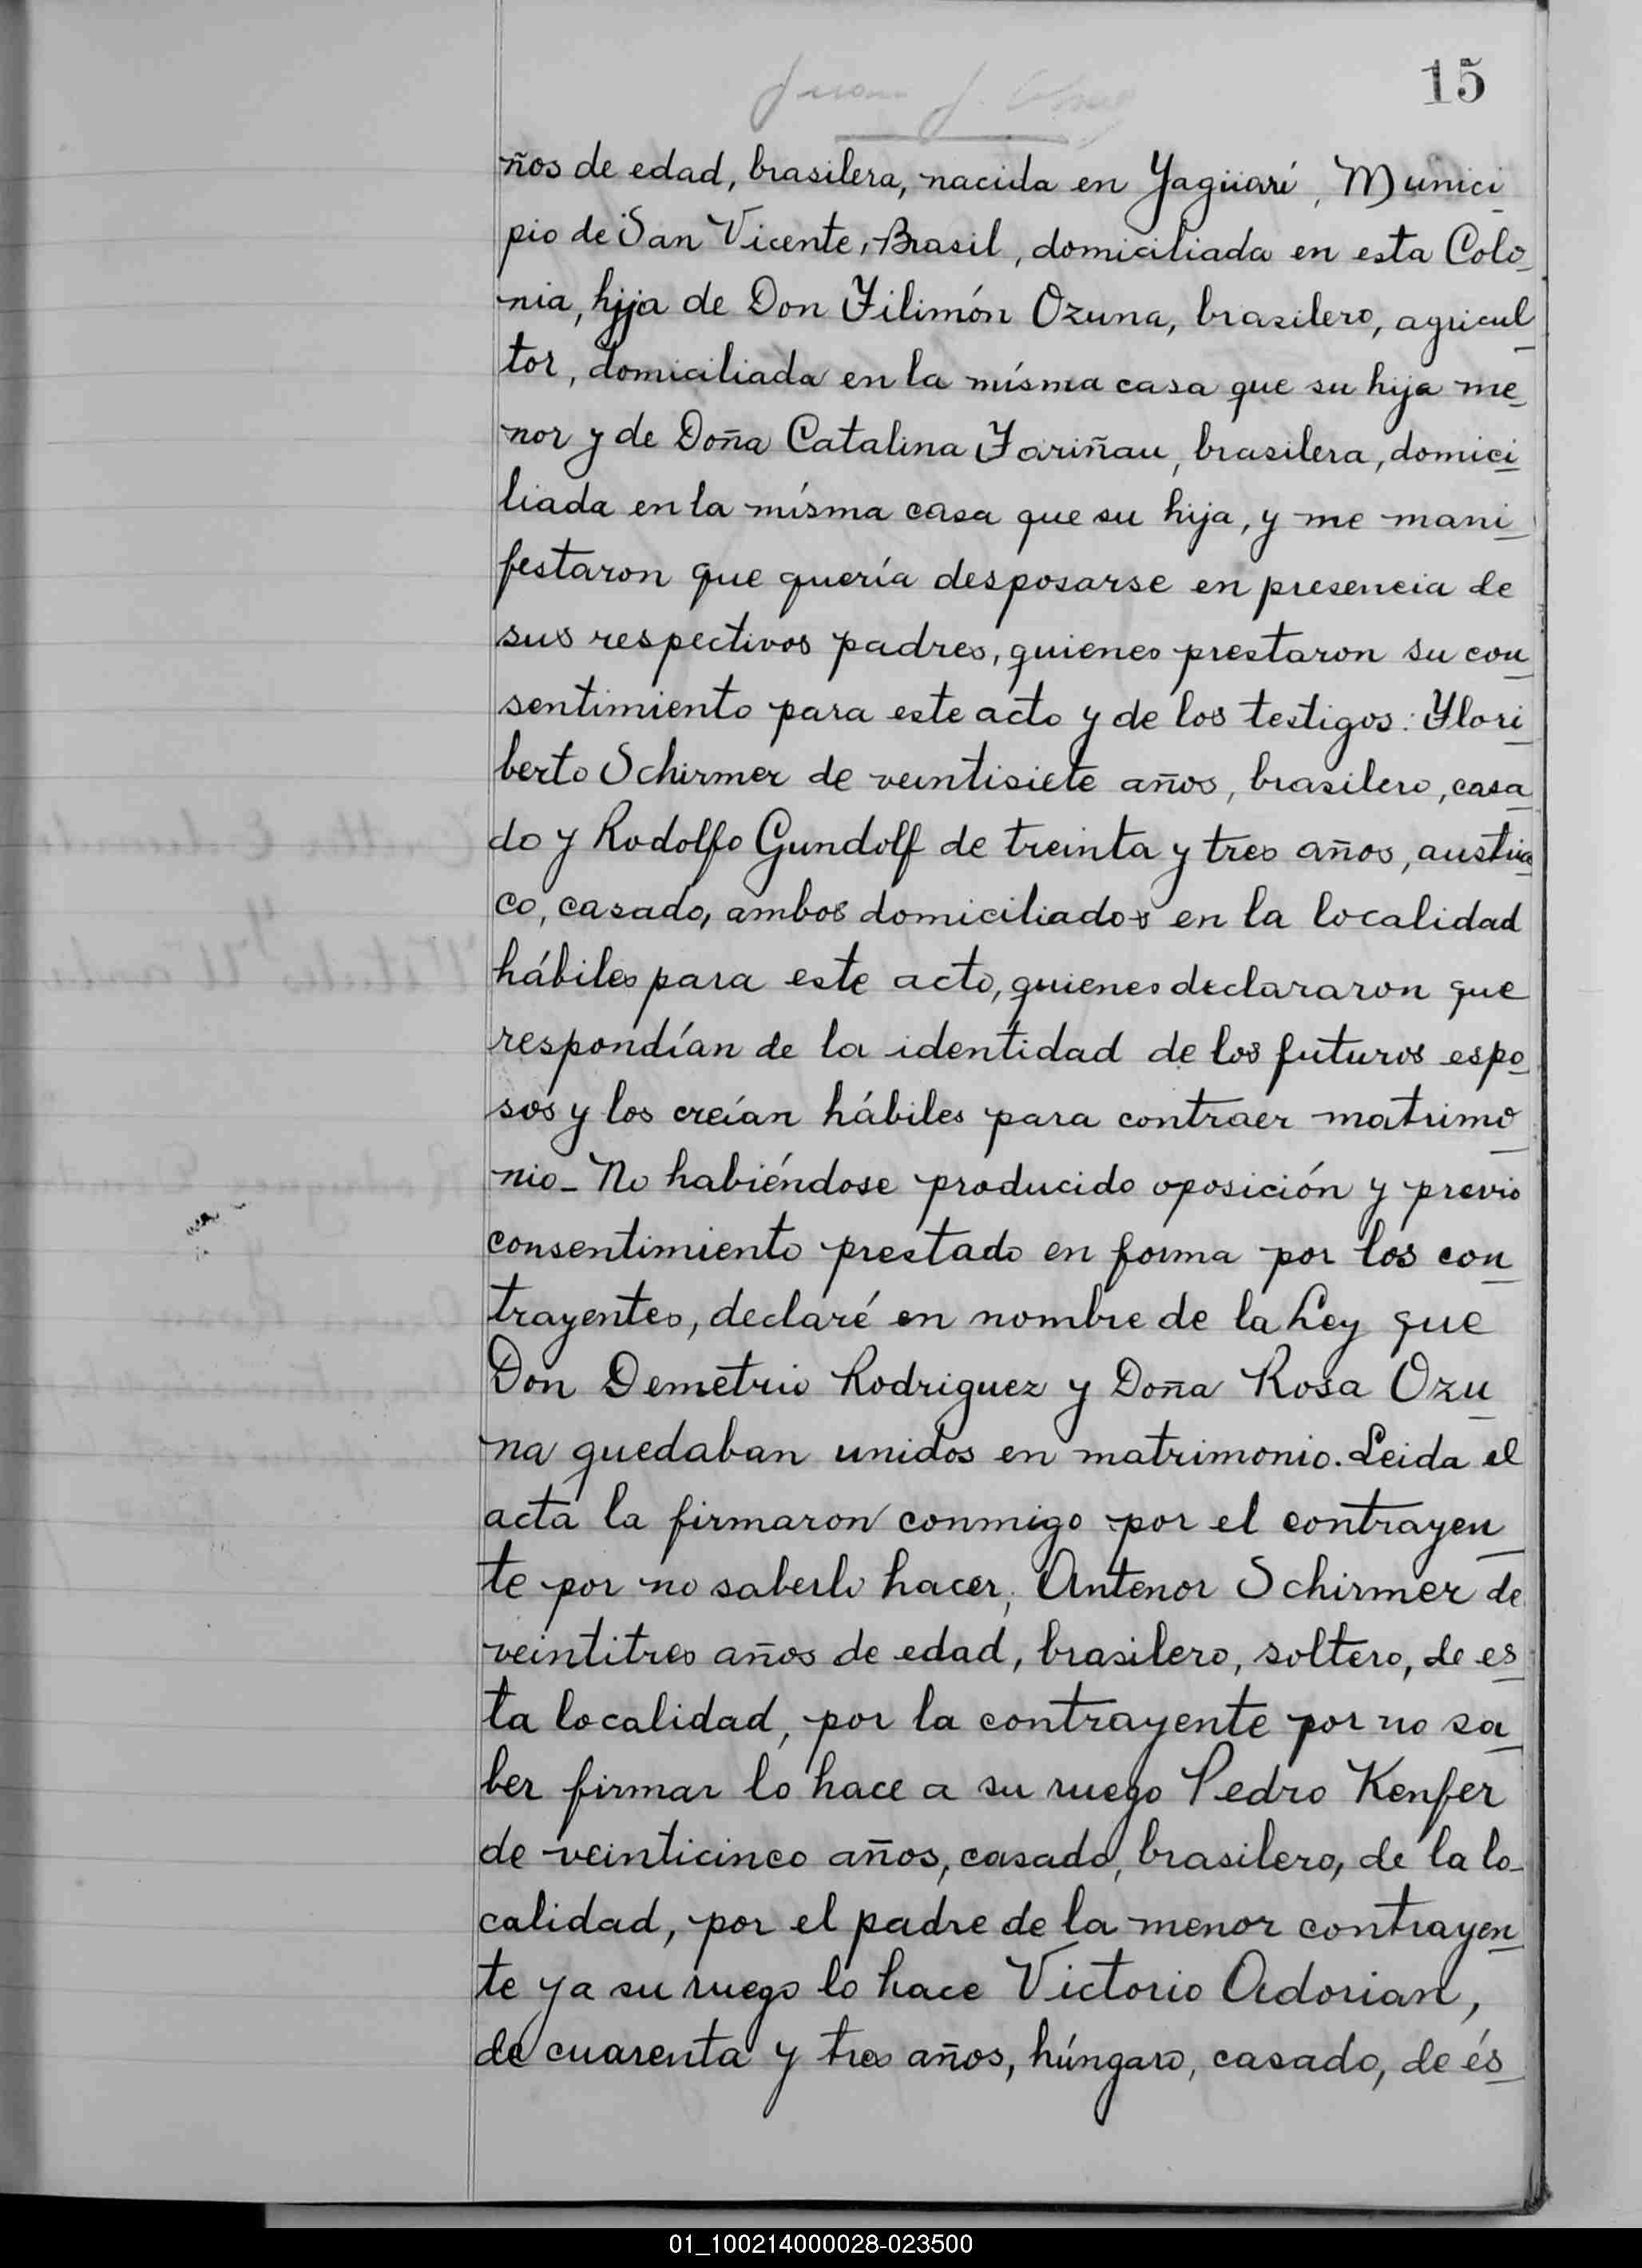 15
ños de edad, brasilera, nacida en Yagüarí, Munici
pio de San Vicente, Brasil, domiciliada en esta Colo
nia, hija de Don Filimón Ozuna, brasilero, agricul
tor, domiciliada en la mísma casa que su hija me
nor y de Doña Catalina Fariñau, brasilera, domici
liada en la mísma casa que su hija, y me mani
festaron que quería desposarse en presencia de
sus respectivos padres, quienes prestaron su con
sentimiento para este acto y de los testigos: Flori
berto Schirmer de veintisiete años, brasilero, casa
do y Rodolfo Gundolf de treinta y tres años, austria
co, casado, ambos domiciliados en la localidad
hábiles para este acto, quienes declararon que
respondían de la identidad de los futuros espo
sos y los creían hábiles para contraer matrimo
nio_ No habiéndose producido oposición y previo
consentimiento prestado en forma por los con
trayentes, declaré en nombre de la Ley que
Don Demetrio Rodriguez y Doña Rosa Ozu
na quedaban unidos en matrimonio. Leida el
acta la firmaron conmigo por el contrayen
te por no saberlo hacer, Antenor Schirmer de
veintitres años de edad, brasilero, soltero, de es
ta localidad, por la contrayente por no sa
ber firmar lo hace a su ruego Pedro Kenfer
de veinticinco años, casado, brasilero, de la lo-
calidad, por el padre de la menor contrayen
te y a su ruego lo hace Victorio Adorian,
de cuarenta y tres años, húngaro, casado, de és
01_100214000028-023500